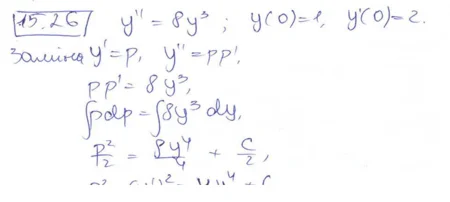 15.26 y'' = 8y³ ; y(0)=1, y'(0)=2.
Заміна y'=p, y''=pp',
pp' = 8y³,
∫pdp = ∫8y³dy,
p²/2 = 8y⁴/4 + C/2,